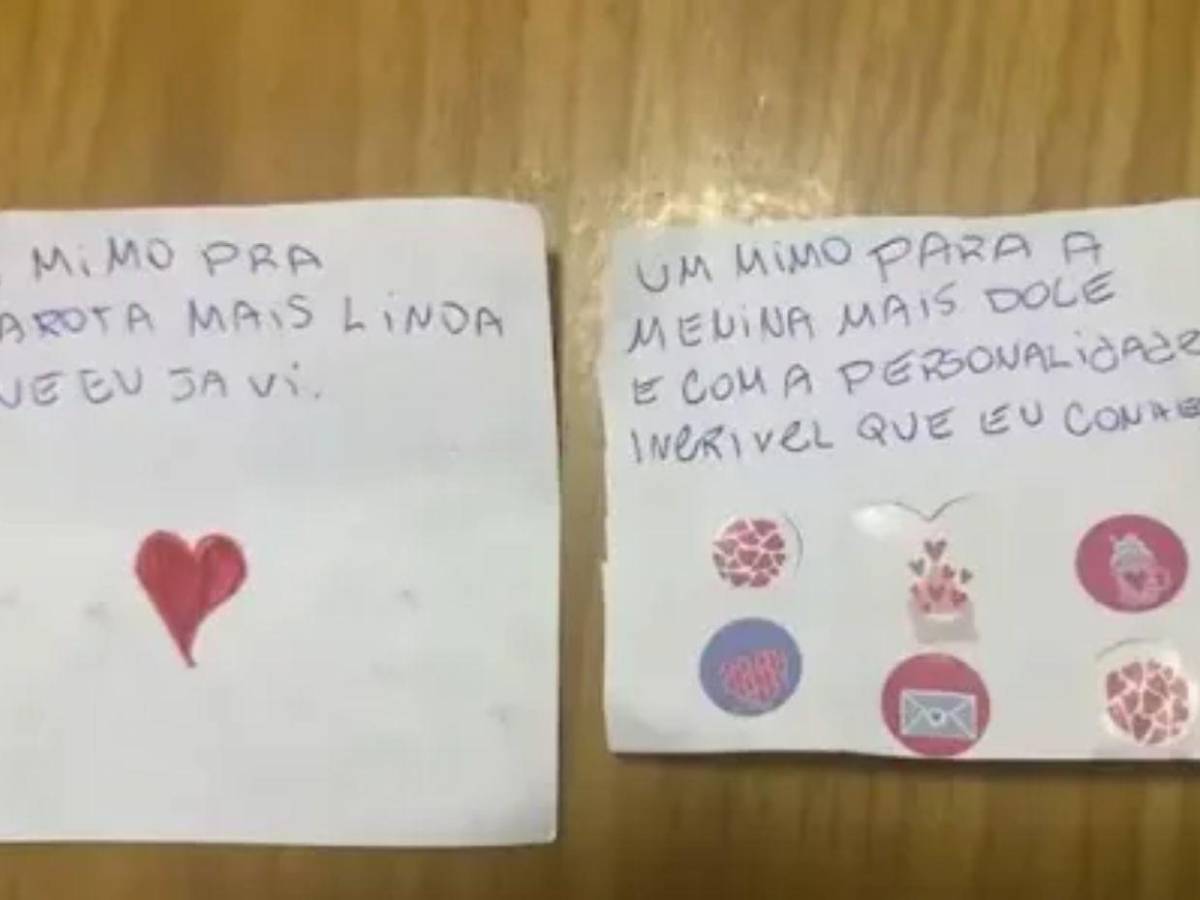 MIMO PRA
AROTA MAIS LINDA
UE EU JA VI.
UM MIMO PARA A
MENINA MAIS DOCE
E COM A PERSONALIDADE
INCRIVEL QUE EU CONHE